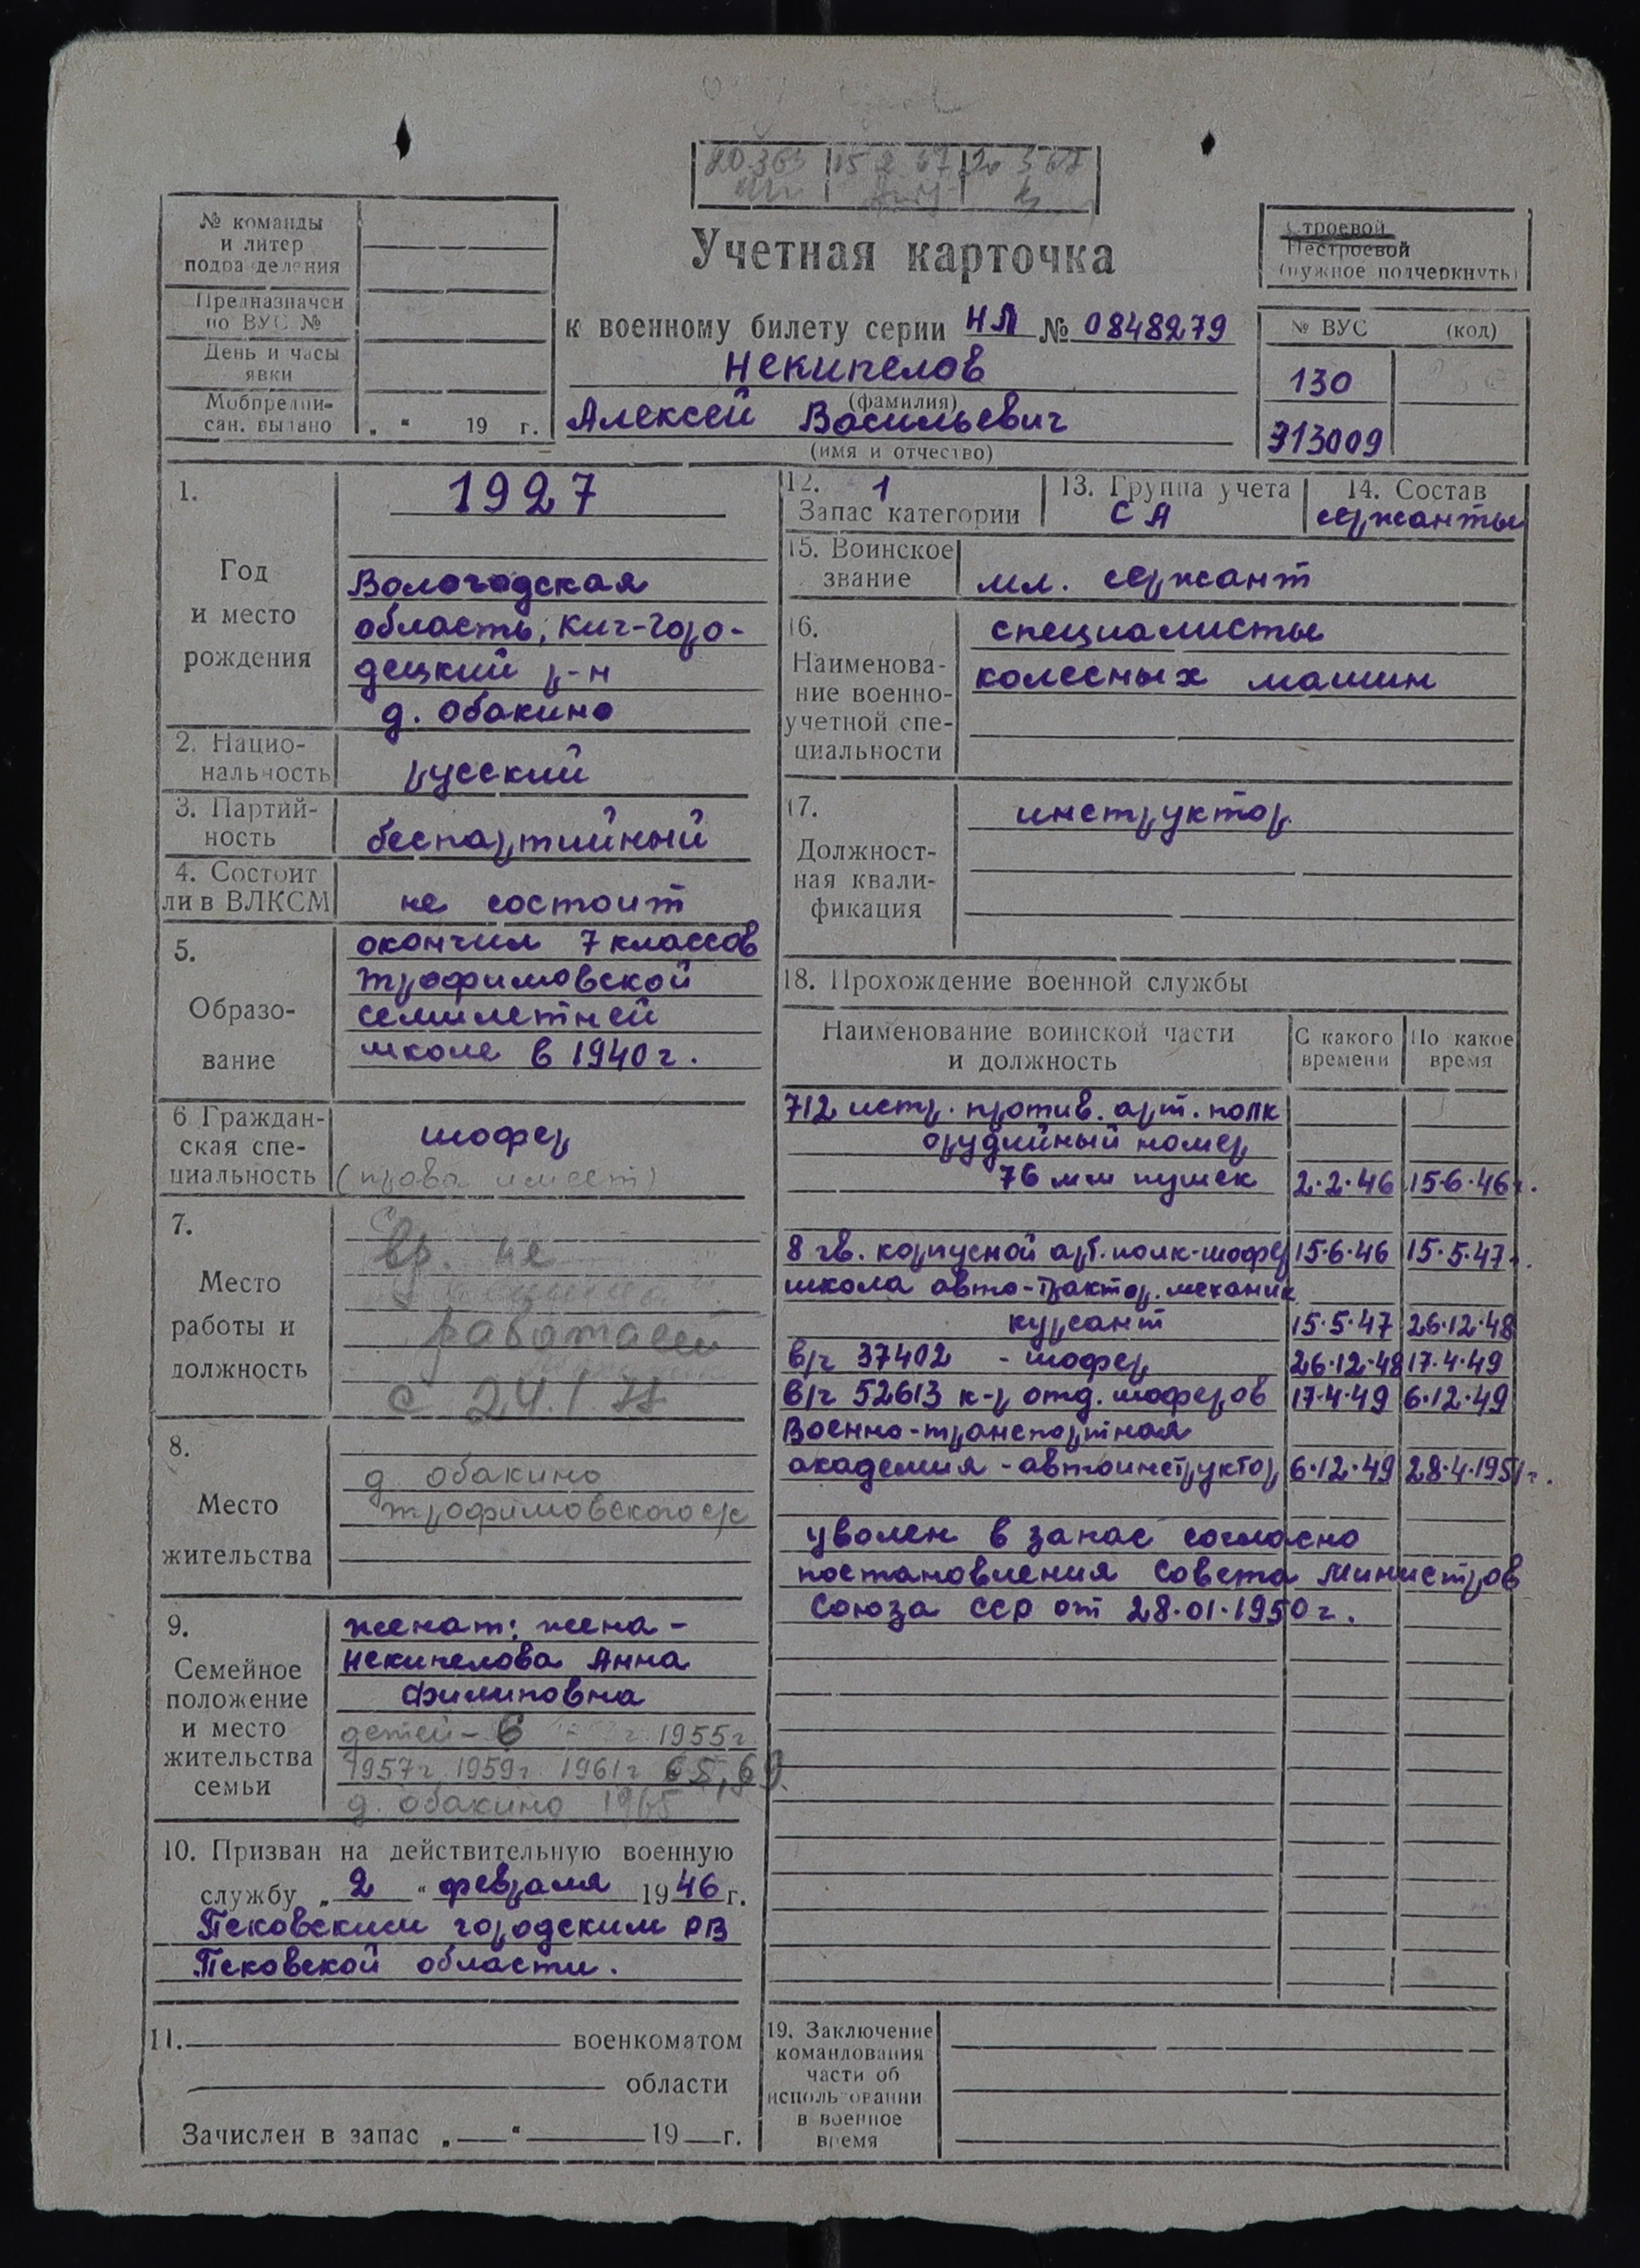 № команды
и литер
подразделения
Предназначен
по ВУС №
День и часы
явки
Мобпредпи-
сан. выдано „ “ 19 г.
Учетная карточка
к военному билету серии НЛ № 0848279
Некипелов
(фамилия)
Алексей Васильевич
(имя и отчество)
Строевой
Нестроевой
(нужное подчеркнуть)
№ ВУС (код)
130
913009
1.
Год
и место
рождения
1927
Вологодская
область, Кич-Горо-
децкий р-н
д. Обакино
2. Нацио-
нальность
русский
3. Партий-
ность
беспартийный
4. Состоит
ли в ВЛКСМ
не состоит
5.
Образо-
вание
окончил 7 классов
Трофимовской
семилетней
школе в 1940 г.
6 Граждан-
ская спе-
циальность
шофер
(права имеет)
7.
Место
работы и
должность
Вр. не
работает
с 24.1.77
8.
Место
жительства
д. Обакино
Трофимовского с/с
9.
Семейное
положение
и место
жительства
семьи
женат: жена -
Некипелова Анна
Филиповна
детей - 6 1955 г
1957 г. 1959 г. 1961 г 65, 69.
д. Обакино 1965
10. Призван на действительную военную
службу „ 2 “ февраля 1946 г.
Псковским городским РВ
Псковской области.
11. военкоматом
области
Зачислен в запас „ “ 19 г.
12. 1
Запас категории
13. Группа учета
СА
14. Состав
сержанты
15. Воинское
звание
мл. сержант
16.
Наименова-
ние военно-
учетной спе-
циальности
специалисты
колесных машин
17.
Должност-
ная квали-
фикация
инструктор.
18. Прохождение военной службы
Наименование воинской части
и должность
С какого
времени
По какое
время
712 истр. против. арт. полк
орудийный номер
76 мм пушек 2.2.46 15.6.46 г.
8 гв. корпусной арт. полк-шофер 15.6.46 15.5.47 г.
школа авто-трактор. механик
курсант 15.5.47 26.12.48
в/ч 37402 - шофер 26.12.48 17.4.49
в/ч 52613 к-р отд. шоферов 17.4.49 6.12.49
Военно-транспортная
академия - автоинструктор 6.12.49 28.4.1951 г.
уволен в запас согласно
постановления Совета Министров
Союза ССР от 28.01.1950 г.
19. Заключение
командования
части об
использовании
в военное
время